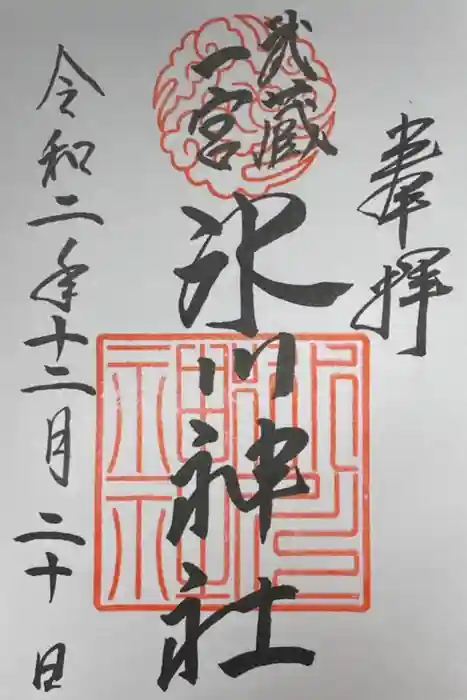 奉拝
武蔵
一宮
氷川神社
令和二年十二月二十日